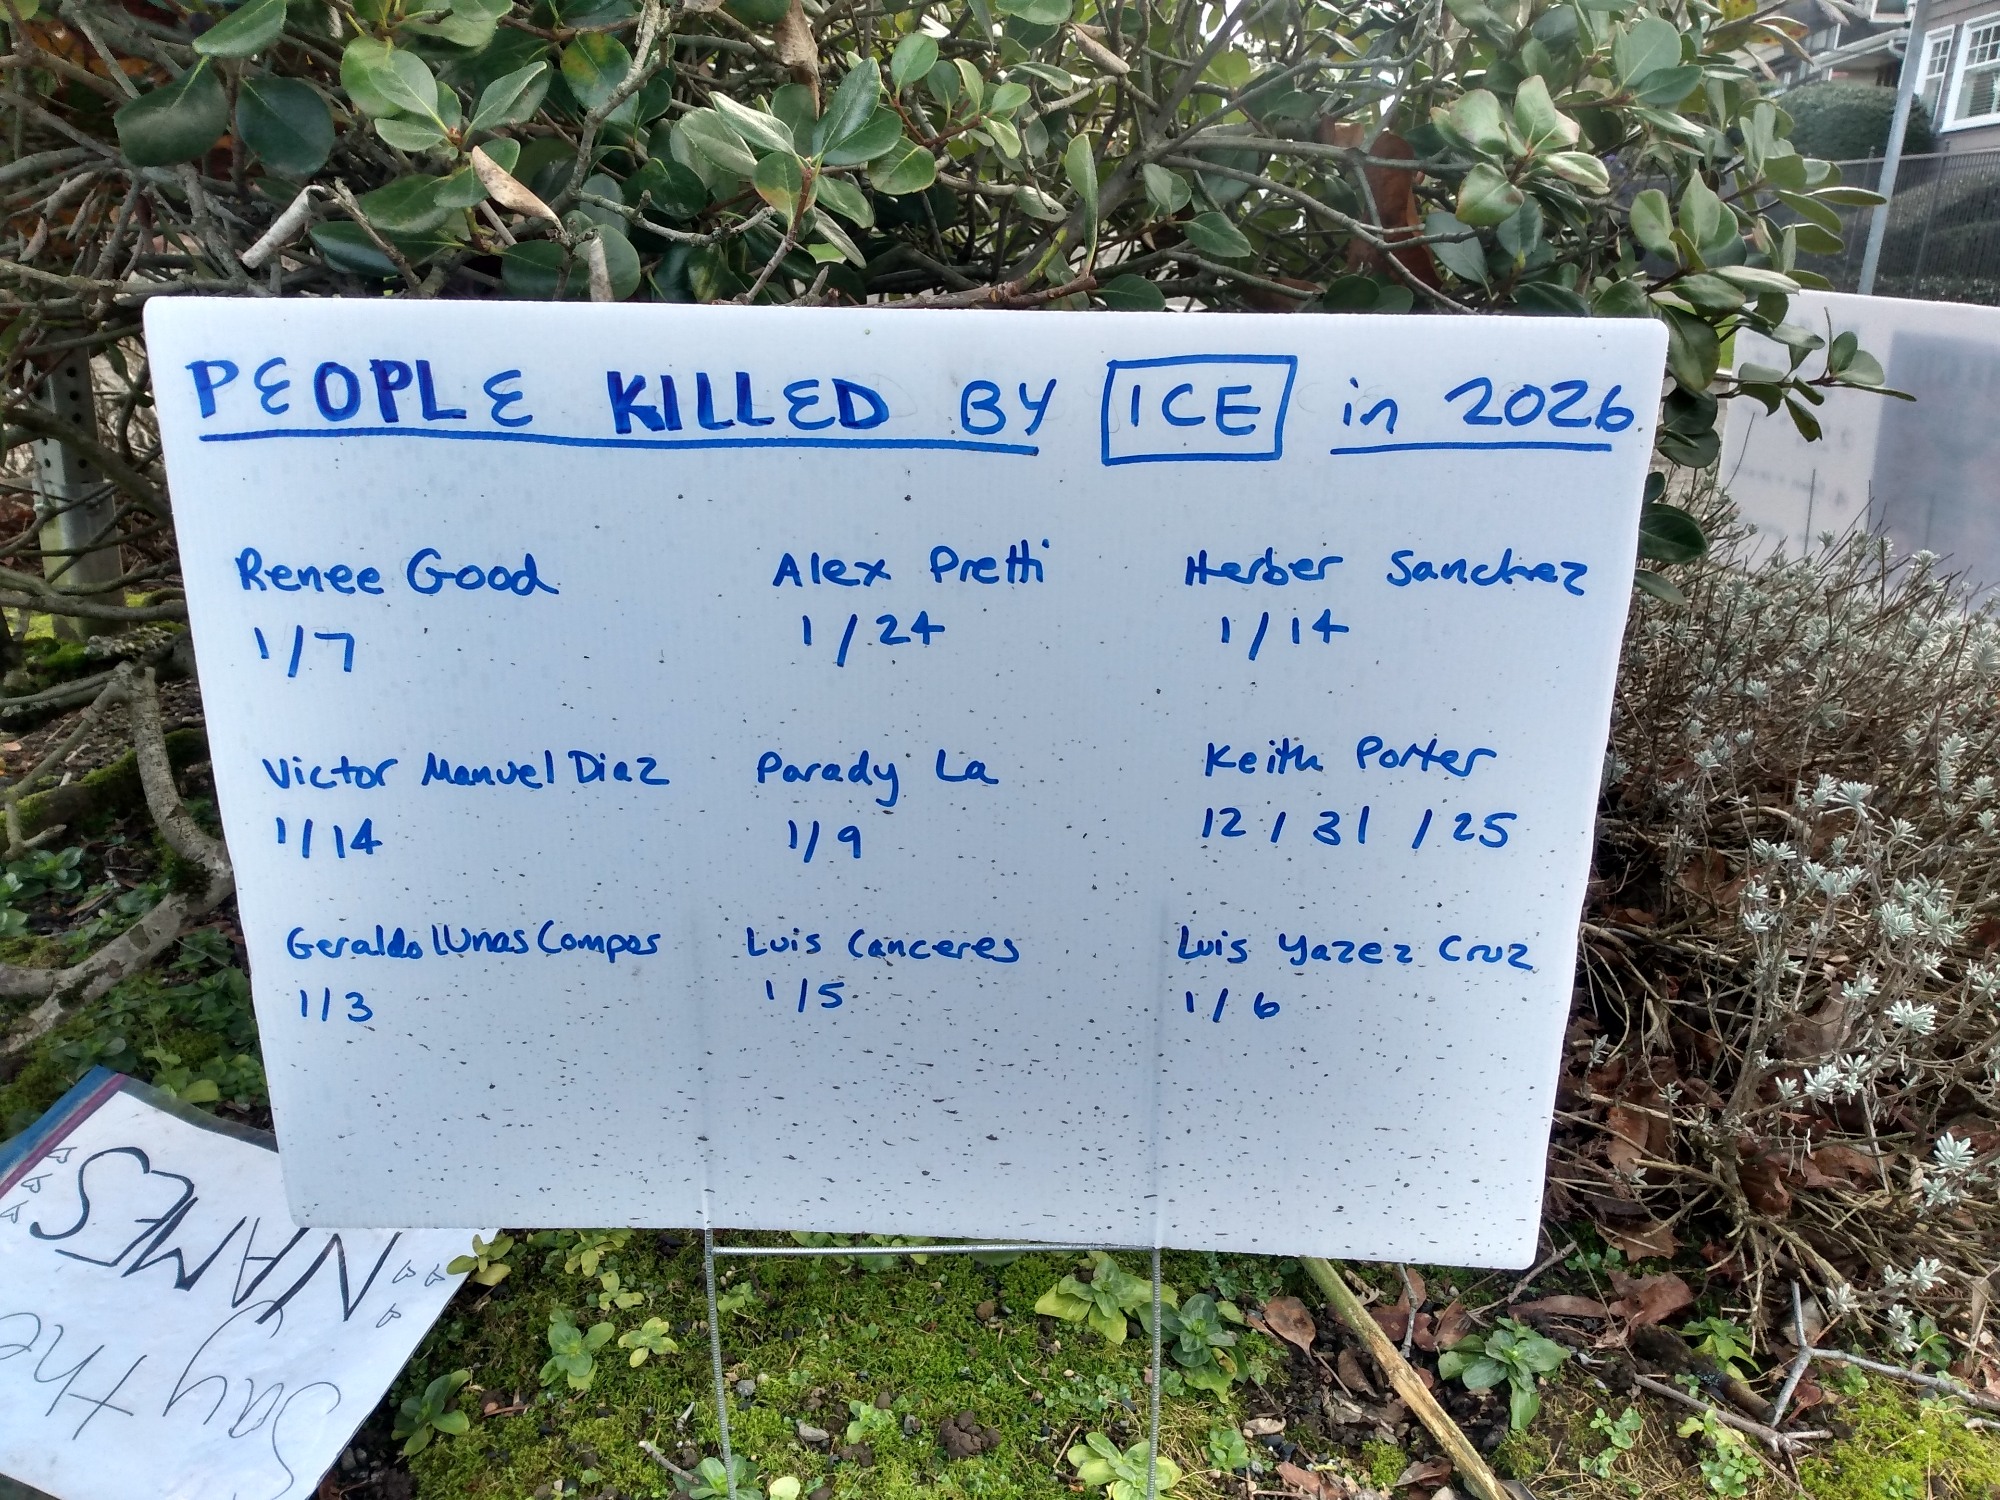 PEOPLE KILLED BY ICE in 2026
Renee Good
1/7
Alex Pretti
1/24
Herber Sanchez
1/14
Victor Manuel Diaz
1/14
Parady La
1/9
Keith Porter
12/31/25
Geraldo lUnas Campos
1/3
Luis Canceres
1/5
Luis Yazez Cruz
1/6
Say the
NAMES